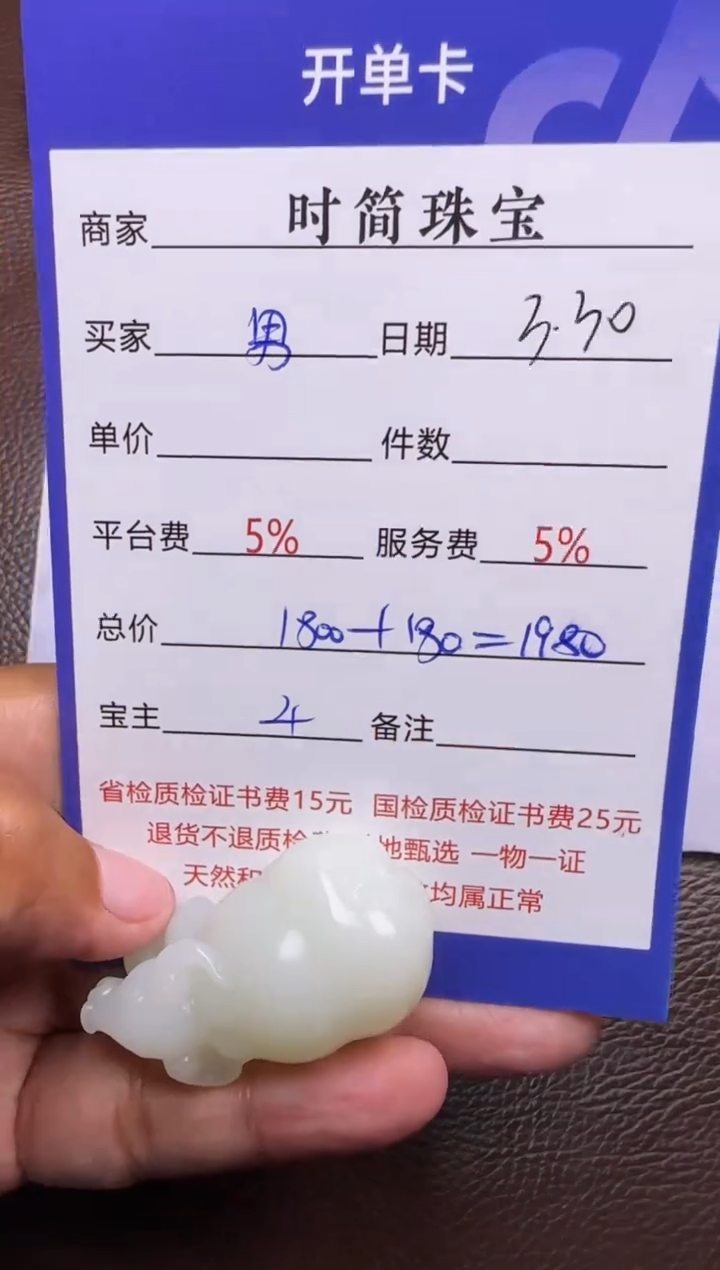 开单卡
商家 时简珠宝
买家 男 日期 3.30
单价 件数
平台费 5% 服务费 5%
总价 1800+180=1980
宝主 4 备注
省检质检证书费15元 国检质检证书费25元
退货不退质检 地甄选 一物一证
天然和 均属正常